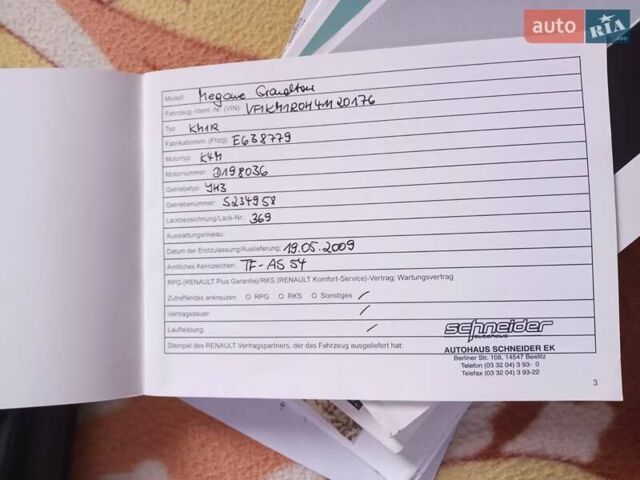 auto RIA .com
Modell: Megane Grandtour
Fahrzeug-Ident.-Nr. (VIN): VF1KM1R0H41120176
Typ: KM1R
Fabrikationsnr. (FNrg): E638779
Motortyp: K4M
Motornummer: D198036
Getriebetyp: JH3
Getriebenummer: S234958
Lackbezeichnung/Lack-Nr.: 369
Ausstattungsniveau:
Datum der Erstzulassung/Auslieferung: 19.05.2009
Amtliches Kennzeichen: TF-AS 54
RPG (RENAULT Plus Garantie)/RKS (RENAULT Komfort-Service)-Vertrag; Wartungsvertrag
Zutreffendes ankreuzen O RPG O RKS O Sonstiges /
Vertragsdauer: /
Laufleistung: /
Stempel des RENAULT Vertragspartners, der das Fahrzeug ausgeliefert hat:
schneider
autohaus
AUTOHAUS SCHNEIDER EK
Berliner Str. 108, 14547 Beelitz
Telefon (03 32 04) 3 93- 0
Telefax (03 32 04) 3 93-22
3